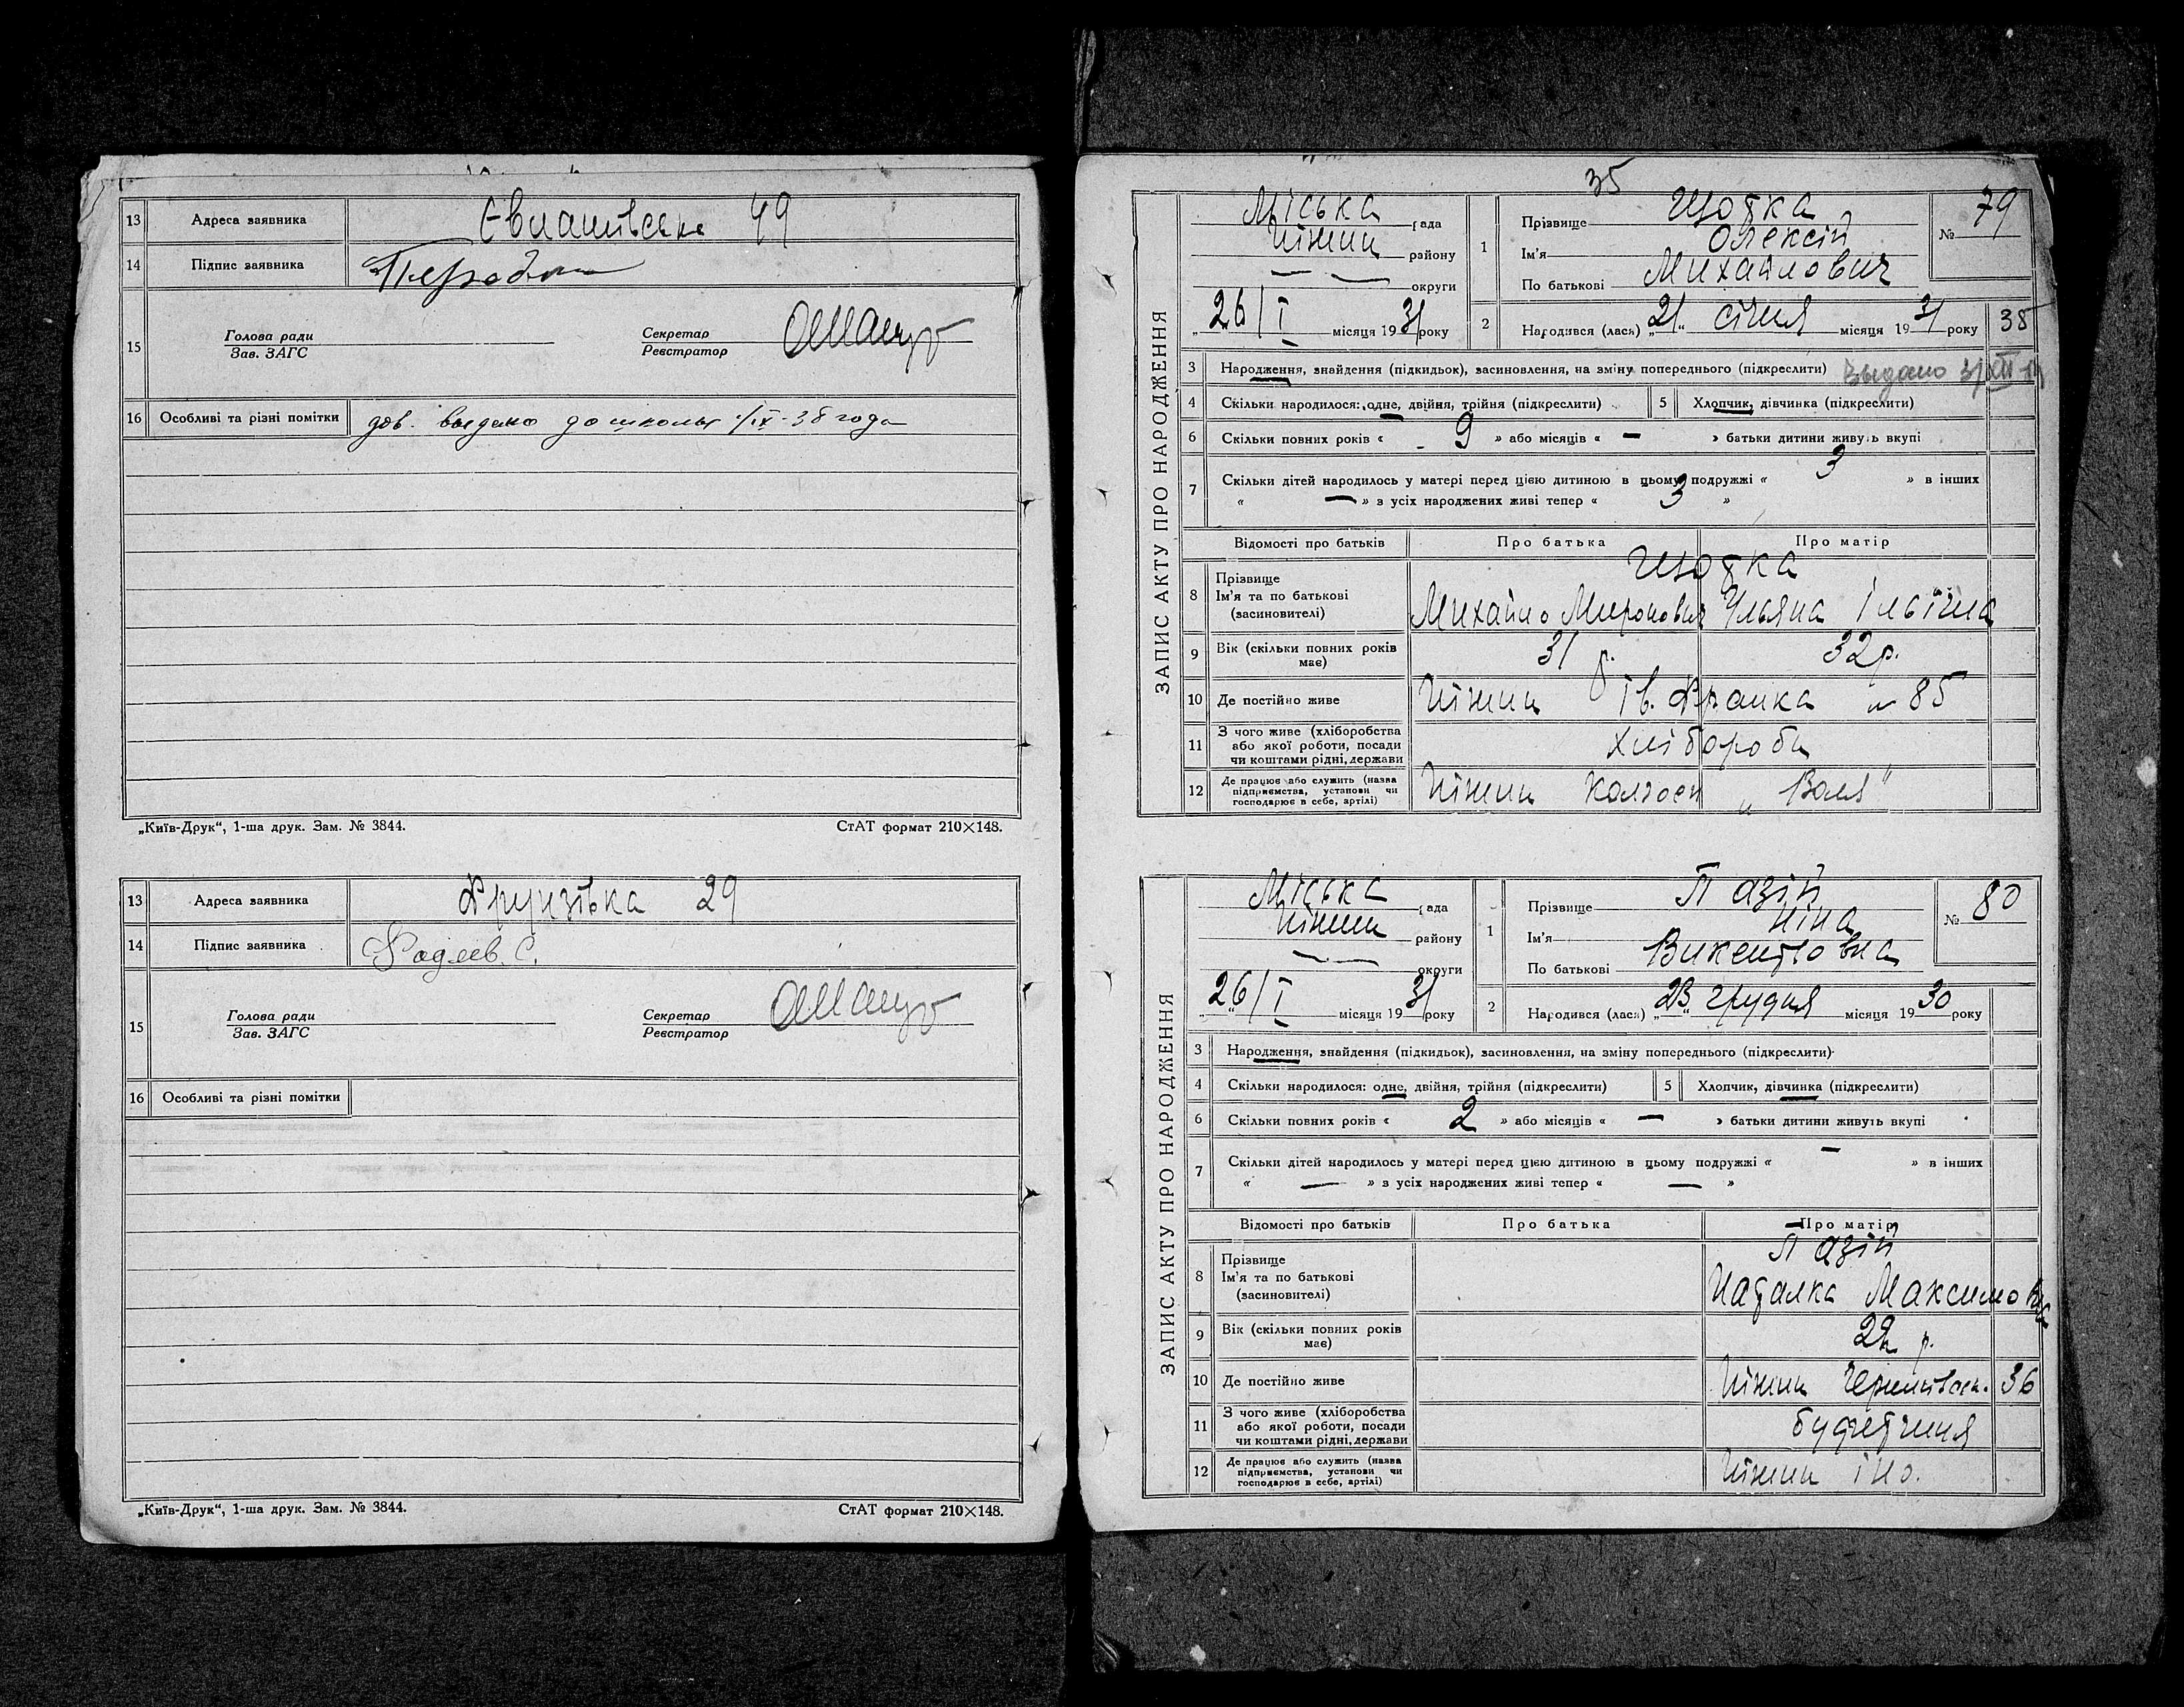 13 Адреса заявника Євлашівська 49
14 Підпис заявника
15 Голова ради
Зав. ЗАГС
Секретар
Реєстратор
16 Особливі та різні помітки дов. выдано до школы 1/IX-38 года
„Київ-Друк“, 1-ша друк. Зам. № 3844. СтАТ формат 210×148.
13 Адреса заявника Фрунзівка 29
14 Підпис заявника
15 Голова ради
Зав. ЗАГС
Секретар
Реєстратор
16 Особливі та різні помітки
„Київ-Друк“, 1-ша друк. Зам. № 3844. СтАТ формат 210×148.
35
ЗАПИС АКТУ ПРО НАРОДЖЕННЯ
Міська рада
Ніжин району
— — округи
26/I місяця 1931 року
1 Прізвище Щотка
Ім'я Олексій
По батькові Михайлович
№ 79
2 Народився (лася) „21“ січня місяця 1931 року 38
3 Народження, знайдення (підкидьок), засиновлення, на зміну попереднього (підкреслити) Выдано
4 Скільки народилося: одне, двійня, трійня (підкреслити) 5 Хлопчик, дівчинка (підкреслити)
6 Скільки повних років « 9 » або місяців « — » батьки дитини живуть вкупі
7 Скільки дітей народилось у матері перед цією дитиною в цьому подружжі « 3 » в інших
« — » з усіх народжених живі тепер « 3 »
Відомості про батьків Про батька Про матір
8 Прізвище Щотка
Ім'я та по батькові
(засиновителі) Михайло Миронович Ульяна Ільїнна
9 Вік (скільки повних років має) 31 р. 32 р.
10 Де постійно живе Ніжин Ів. Франка № 85
11 З чого живе (хліборобства
або якої роботи, посади
чи коштами рідні, держави Хлібороби
12 Де працює або служить (назва
підприємства, установи чи
господарює в себе, артілі) Ніжин Колгосп „Воля“
ЗАПИС АКТУ ПРО НАРОДЖЕННЯ
Міська рада
Ніжин району
— — округи
26/I місяця 1931 року
1 Прізвище Пазій
Ім'я Ніна
По батькові Викентіовна
№ 80
2 Народився (лася) „23“ грудня місяця 1930 року
3 Народження, знайдення (підкидьок), засиновлення, на зміну попереднього (підкреслити)
4 Скільки народилося: одне, двійня, трійня (підкреслити) 5 Хлопчик, дівчинка (підкреслити)
6 Скільки повних років « 2 » або місяців « — » батьки дитини живуть вкупі
7 Скільки дітей народилось у матері перед цією дитиною в цьому подружжі « — » в інших
« — » з усіх народжених живі тепер « — »
Відомості про батьків Про батька Про матір
8 Прізвище Пазій
Ім'я та по батькові
(засиновителі) Наталка Максимовна
9 Вік (скільки повних років має) р.
10 Де постійно живе Ніжин 36
11 З чого живе (хліборобства
або якої роботи, посади
чи коштами рідні, держави буфетчиця
12 Де працює або служить (назва
підприємства, установи чи
господарює в себе, артілі) Ніжин ІНО.